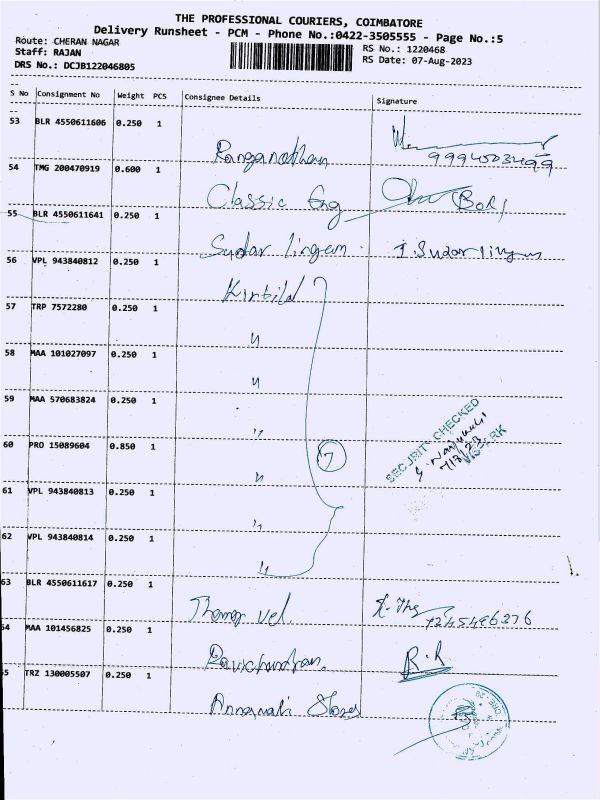 THE PROFESSIONAL COURIERS, COIMBATORE
Delivery Runsheet - PCM - Phone No.:0422-3505555 - Page No.:5
Route: CHERAN NAGAR
RS No.: 1220468
Staff: RAJAN
RS Date: 07-Aug-2023
DRS No.: DCJB122046805
S No Consignment No Weight PCS Consignee Details Signature
53 BLR 4550611606 0.250 1
Ranganathan
54 TMG 200470919 0.600 1
Classic Eng
55 BLR 4550611641 0.250 1
Sudar lingam I. Sudar lingam
56 VPL 943840812 0.250 1
Kirtilal
57 TRP 7572280 0.250 1
"
58 MAA 101027097 0.250 1
"
59 MAA 570683824 0.250 1
"
60 PRO 15089604 0.850 1
" 7
SECURITY CHECKED
7/8/23
61 VPL 943840813 0.250 1
"
62 VPL 943840814 0.250 1
"
63 BLR 4550611617 0.250 1
54 MAA 101456825 0.250 1
Ravichandran. R.R
55 TRZ 130005507 0.250 1
Stores